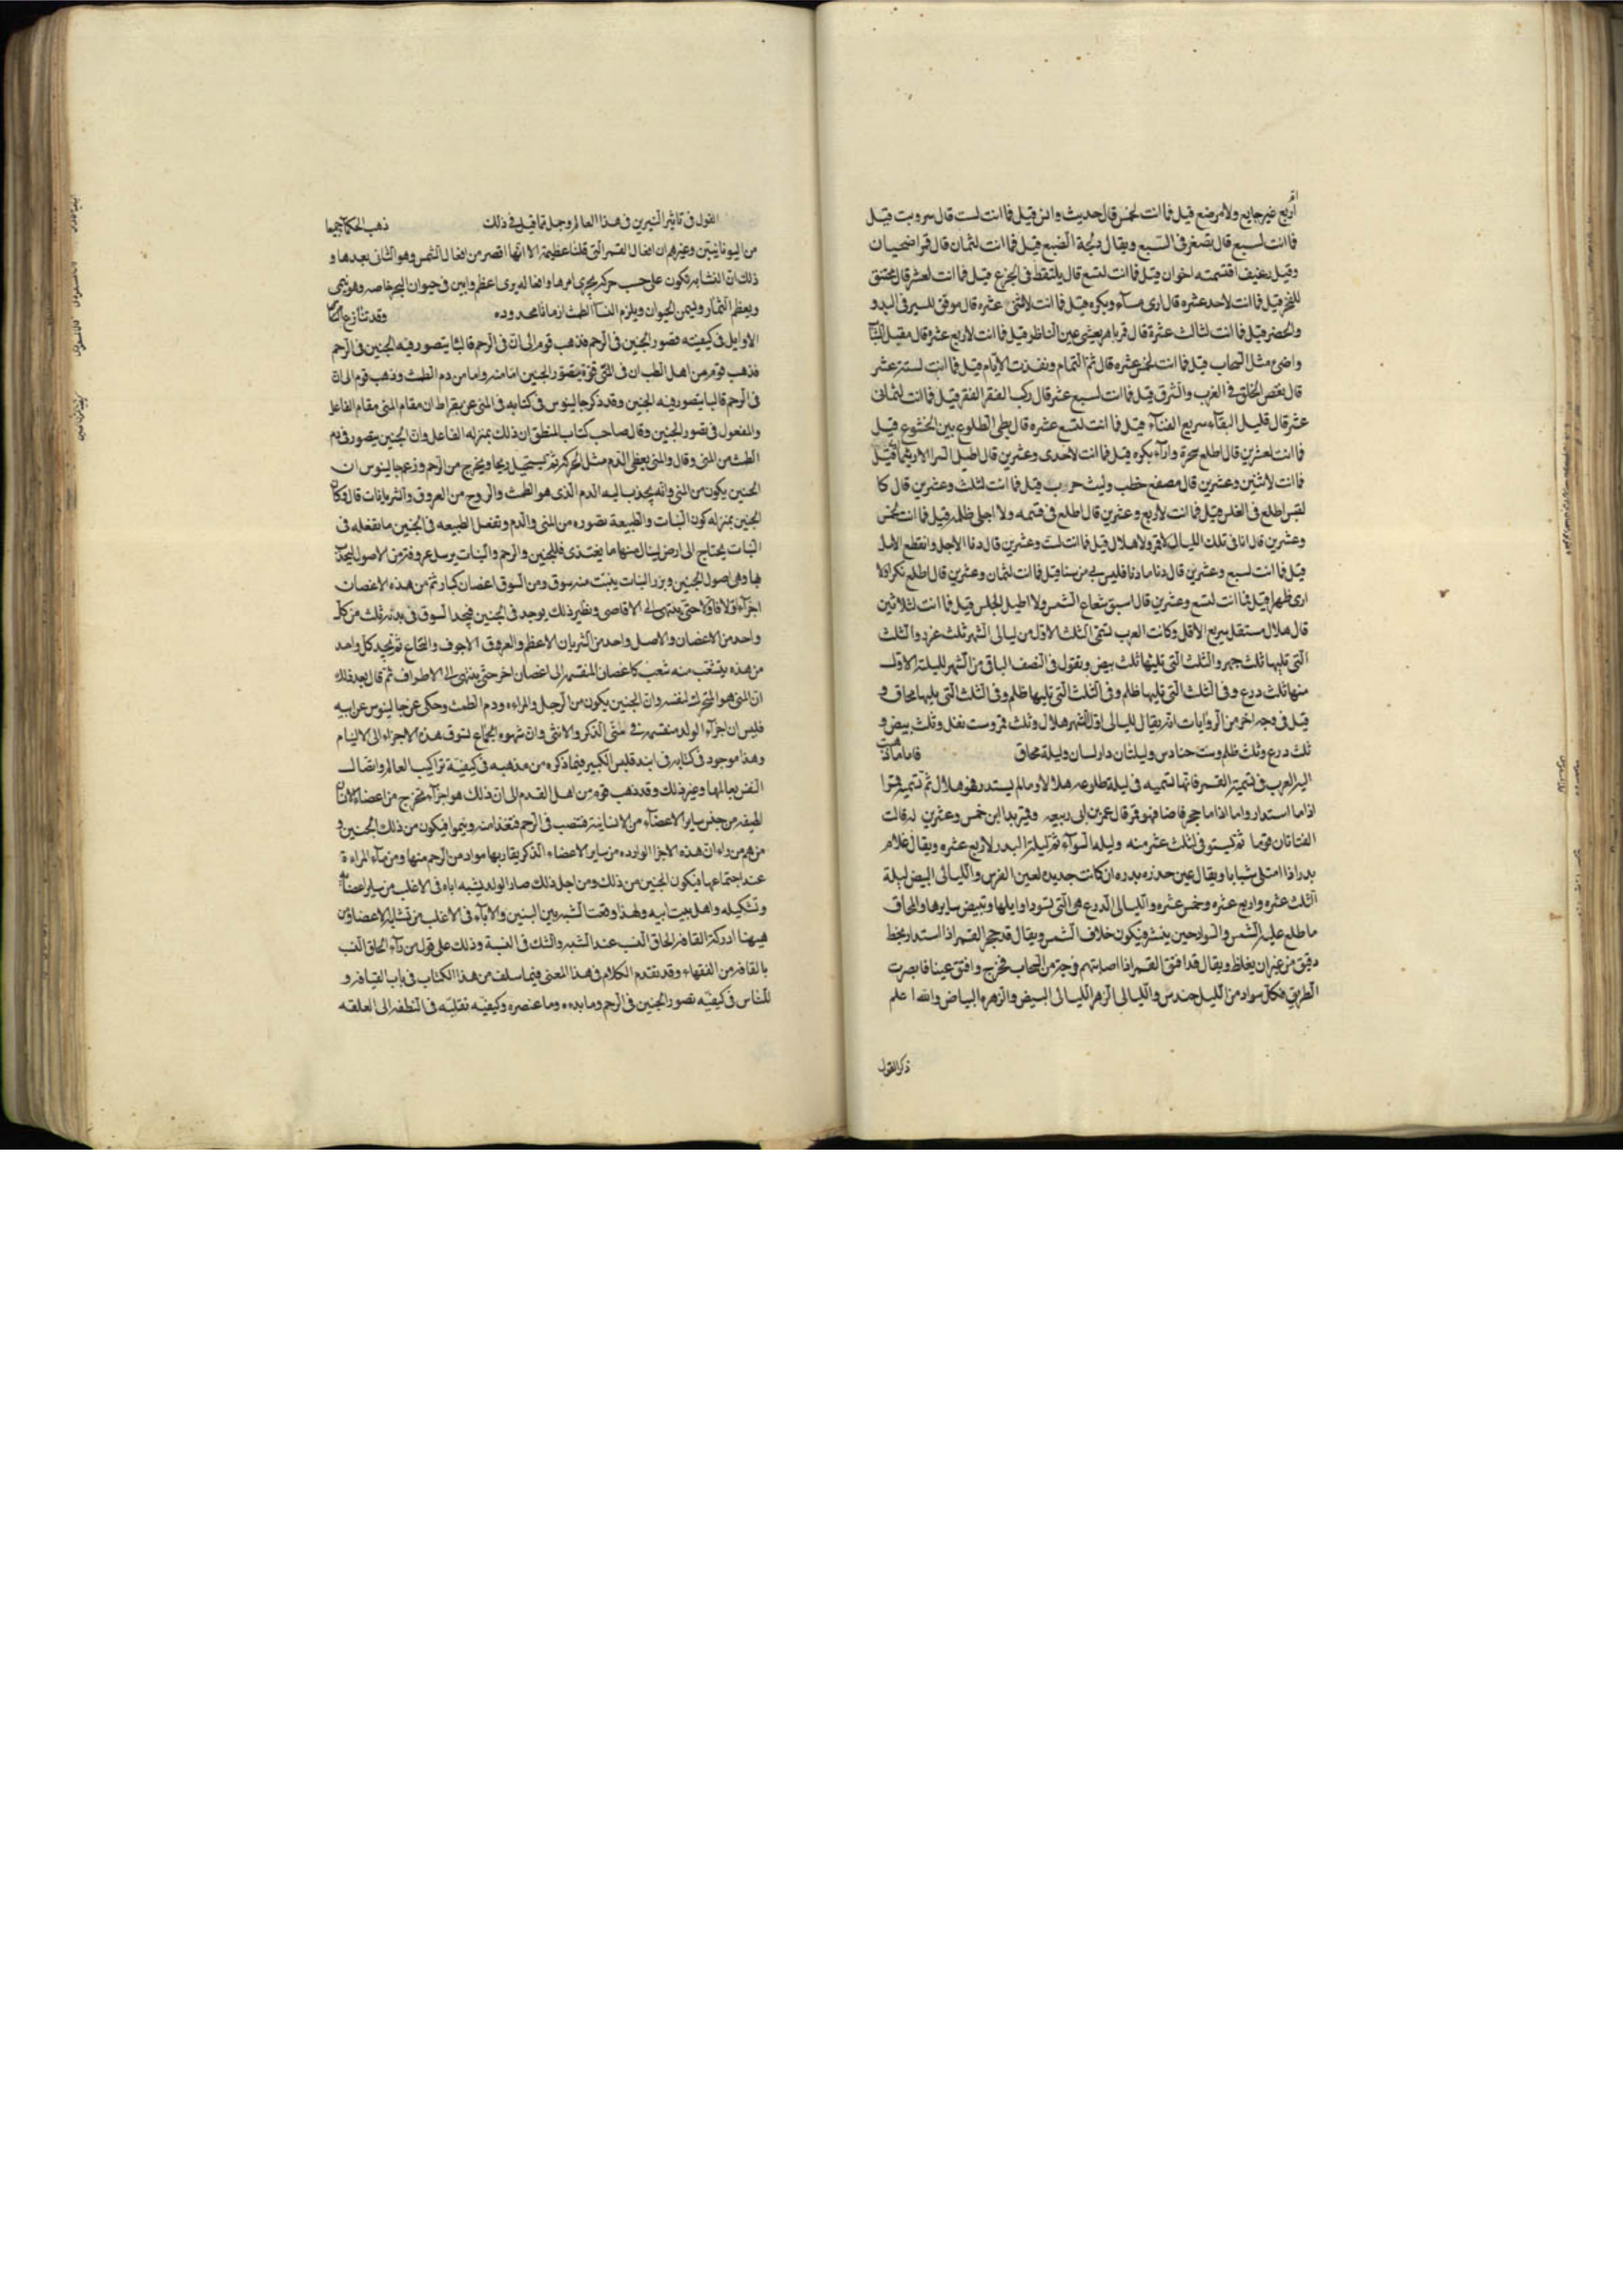 اربع غير جايع ولا مرضع قيل فما انت لخمس قال حديث وانس قيل فما انت لست قال سر وبت قيل
فما انت لسبع قال تصغر في السبع ويقال دلجة الضبع قيل فما انت لثمان قال قمر اضحيان
وقيل رغيف اقتسمته اخوان قيل فما انت لتسع قال يلتقط في الجزع قيل فما انت لعشر قال محتنق
للفجر قيل فما انت لاحد عشره قال ارى مسآء وبكره قيل فما انت لاثنتى عشره قال موفق للسير في البدو
والحضر قيل فما انت لثالث عشرة قال قمر باهر يعشى عين الناظر قيل فما انت لاربع عشرة قال مقبل الشباب
واضئ مثل السحاب قيل فما انت لخمس عشره قال ثم التمام ونفدت الايام قيل فما انت لستة عشر
قال نقص الخلق في الغرب والشرق قيل فما انت لسبع عشر قال ركب المفتقر الفقر قيل فما انت لثمانى
عشر قال قليل البقآء سريع الفنآء قيل فما انت لتسع عشره قال بطى الطلوع بين الخشوع قيل
فما انت لعشرين قال اطلع سحرة وارآء بكره قيل فما انت لاحدى وعشرين قال اطيل السرا الا ريثما قيل
فما انت لاثنين وعشرين قال مصفح خطب وليث حرب قيل فما انت لثلث وعشرين قال كا
لقبس اطلع في الغلس قيل فما انت لاربع وعشرين قال اطلع في قتمه ولا اجلى ظلمه قيل فما انت لخمس
وعشرين قال انا في تلك الليال لا قمر ولا هلال قيل فما انت لست وعشرين قال دنا الاجل وانقطع الامل
قيل فما انت لسبع وعشرين قال دنا ما دنا فليس لى من سنا قيل فما انت لثمان وعشرين قال اطلع بكرا ولا
ارى ظهرا قيل فما انت لتسع وعشرين قال اسبق شعاع الشمس ولا اطيل الجلس قيل فما انت لثلاثين
قال هلال مستقل سريع الافل وكانت العرب تسمى الثلث الاول من ليالى الشهر ثلث غرر والثلث
التى تليها ثلث جهر والثلث التى تليها ثلث بيض ويقول في النصف الباقى من الشهر لليلة الاولى
منها ثلث درع وفي الثلث التى تليها ظلم وفي الثلث التى تليها ظلم وفي الثلث التى يليها محاق و
قيل في وجه اخر من الروايات انه يقال لليالى اول الشهر هلال وثلث قمر وست نفل وثلث بيض و
ثلث درع وثلث ظلم وست حنادس وليلتان داريان وليلة محاق فاما ما ذهبت
اليه العرب في تسمية القمر فانها تسميه في ليلة طلوعه هلالا وما لم يستدر فهو هلال ثم تسميه قمرا
اذا ما استدار واما اذا ما حجر فاضا فهو قمر قال عمر بن ابى ربيعه وقمير بدا ابن خمس وعشرين له قالت
الفتاتان قوما ثم يستوى في ثلث عشر منه وليله السوآء ثم ليلة البدر لاربع عشره ويقال غلام
بدر اذا امتلى شبابا ويقال عين حدره بدره ان كانت جديده لعين الفرس والليالى البيض ليلة
الثلث عشره واربع عشره وخمس عشره والليالى الدرع هى التى تسود اوايلها وتبيض سايرها والمحاق
ما طلع عليه الشمس والسواد حين ينشر فيكون خلاف الشمس ويقال قد حجر القمر اذا استدار بخط
دقيق من غير ان يغلظ ويقال قد افتق القمر اذا اصابتهم فرجة من السحاب فخرج وافتق عينا فابصرت
الطريق فكل سواد من الليل حندس والليالى الزهر الليالى البيض والزهره البياض والله اعلم
ذكر القول
القول في تاثير النيرين في هذا العالم وجمل مما قيل في ذلك ذهب الحكمآء جميعا
من اليونانيين وغيرهم ان افعال القمر التى قلنا عظيمة الا انها اقصر من افعال الشمس وهو الثانى بعدها و
ذلك ان النشا به تكون على حسب حركته يجرى امرها وافعاله يرى اعظم وابين في حيوان البحر خاصه وهو ينمى
ويعظم الثمار ويسمن الحيوان ويلزم النسآء الطمث ازمانا محدوده وقد تنازع الناس
الاوايل في كيفيته تصور الجنين في الرحم فذهب قوم الى ان في الرحم قالبا يتصور فيه الجنين في الرحم
فذهب قوم من اهل الطب ان في المنى قوة يتصور الجنين اما منه واما من دم الطمث وذهب قوم الى ان
في الرحم قالبا يتصور فيه الجنين وقد ذكر جالينوس في كتابه في المنى عن بقراط ان مقام المنى مقام الفاعل
والمفعول في تصور الجنين وقال صاحب كتاب المنطق ان ذلك بمنزله الفاعل وان الجنين يتصور في دم
الطمث من المنى وقال والمنى يعطى الدم مثل الحركة ثم يستحيل ريحا ويخرج من الرحم وزعم جالينوس ان
الجنين يكون من المنى وانه يجذب اليه الدم الذى هو الطمث والروح من العروق والشريانات قال فكان
الجنين بمنزله كون النبات والطبيعة تصوره من المنى والدم وتفعل الطبيعه في الجنين ما تفعله في
النبات يحتاج الى ارض لينال منها ما يغتذى فللجنين والرحم والنبات يرسل عروقه من الاصول ليجذب
بها وهى اصول الجنين وبزر النبات ينبت منه سوق ومن السوق اغصان كبار ثم من هذه الاغصان
اجزآء اولا فاولا حتى ينتهى الى الاقاصى ونظير ذلك يوجد في الجنين فتجد السوق في بدنه ثلث من كل
واحد من الاغصان والاصل واحد من الشريان الاعظم والعروق الاجوف والنخاع ثم تجد كل واحد
من هذه يتشعب منه شعب كاغصان المنقسمه الى اغصان اخر حتى ينتهى الى الاطراف ثم قال بعد ذلك
ان المنى هو المتحرك لنفسه وان الجنين يكون من الرجل والمراه ودم الطمث وحكى عن جالينوس عن ابيه
فليس ان اجزآء الولد منقسمه في منى الذكر والانثى وان شهوه الجماع تسوق هذه الاجزاء الى الاليتام
وهذا موجود في كتابه في ابندقليس الكبير فيما ذكره من مذهبه في كيفية تراكيب العالم واتصال
النفس بعالمها وغير ذلك وقد ذهب قوم من اهل القدم الى ان ذلك هو اجزآء تخرج من اعضاء الانسان
لطيفه من جنس ساير الاعضآء من الانسانيه فتصب في الرحم فتغذا منه وينموا فيكون من ذلك الجنين و
منهم من راى ان هذه الاجزا الوارده من ساير الاعضاء الذكر يقاربها مواد من الرحم منها ومن مآء المراة
عند اجتماعها فيكون الجنين من ذلك ومن اجل ذلك صار الولد يشبه اباه في الاغلب من ساير اعضائه
وتشكيله واهل بيت ابيه ولهذا وقعت الشبه بين البنين والاباء في الاغلب من تشابه الاعضاء ومن
هيهنا ادركة القافه الحاق النسب عند الشبه والشك في النسبة وذلك على قول من رآء الحاق النسب
بالقافه من الفقهاء وقد تقدم الكلام في هذا المعنى فيما سلف من هذا الكتاب في باب القيافه و
للناس في كيفيه تصور الجنين في الرحم وما بدءه وما عنصره وكيفيه تقلبه في النطفه الى العلقه